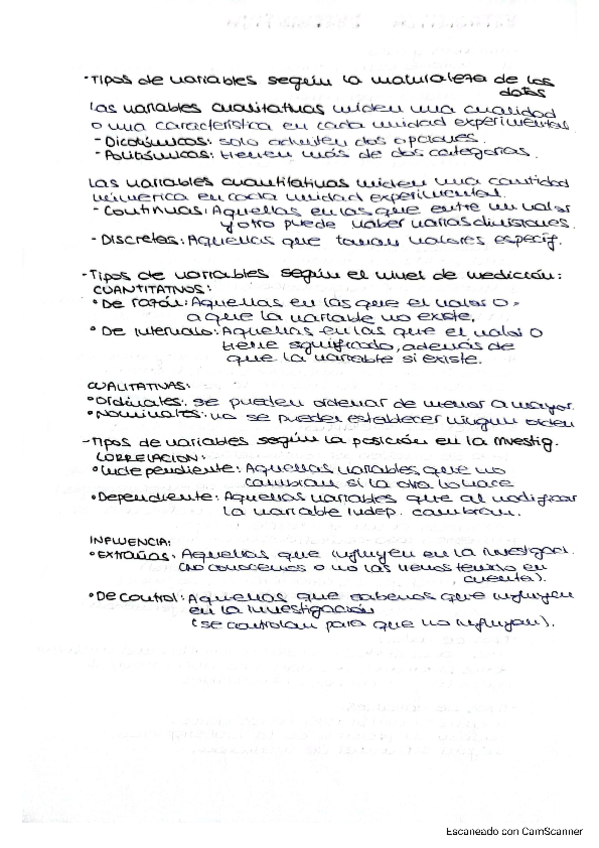 - Tipos de variables según la naturaleza de los
datos
Las variables cualitativas miden una cualidad
o una característica en cada unidad experimental
- Dicotómicas: solo admiten dos opciones.
- Politómicas: tienen más de dos categorías.
Las variables cuantitativas miden una cantidad
númerica en cada unidad experimental.
- Continuas: Aquellas en las que entre un valor
y otro puede haber varias divisiones.
- Discretas: Aquellas que toman valores específ.
- Tipos de variables según el nivel de medición:
CUANTITATIVOS:
• De razón: Aquellas en las que el valor 0
a que la variable no existe.
• De Intervalo: Aquellas en las que el valor 0
tiene significado, además de
que la variable si existe.
CUALITATIVAS:
• Ordinales: se pueden ordenar de menor a mayor.
• Nominales: no se puede establecer ningún orden
- Tipos de variables según la posición en la investig.
CORRELACION:
• Independiente: Aquellas variables que no
cambian si la otra lo hace
• Dependiente: Aquellas variables que al modificar
la variable indep. cambian.
INFLUENCIA:
• Extrañas: Aquellas que influyen en la investigaci.
(no conocemos o no las hemos tenido en
cuenta).
• De control: Aquellas que sabemos que influyen
en la investigación
(se controlan para que no influyan).
Escaneado con CamScanner